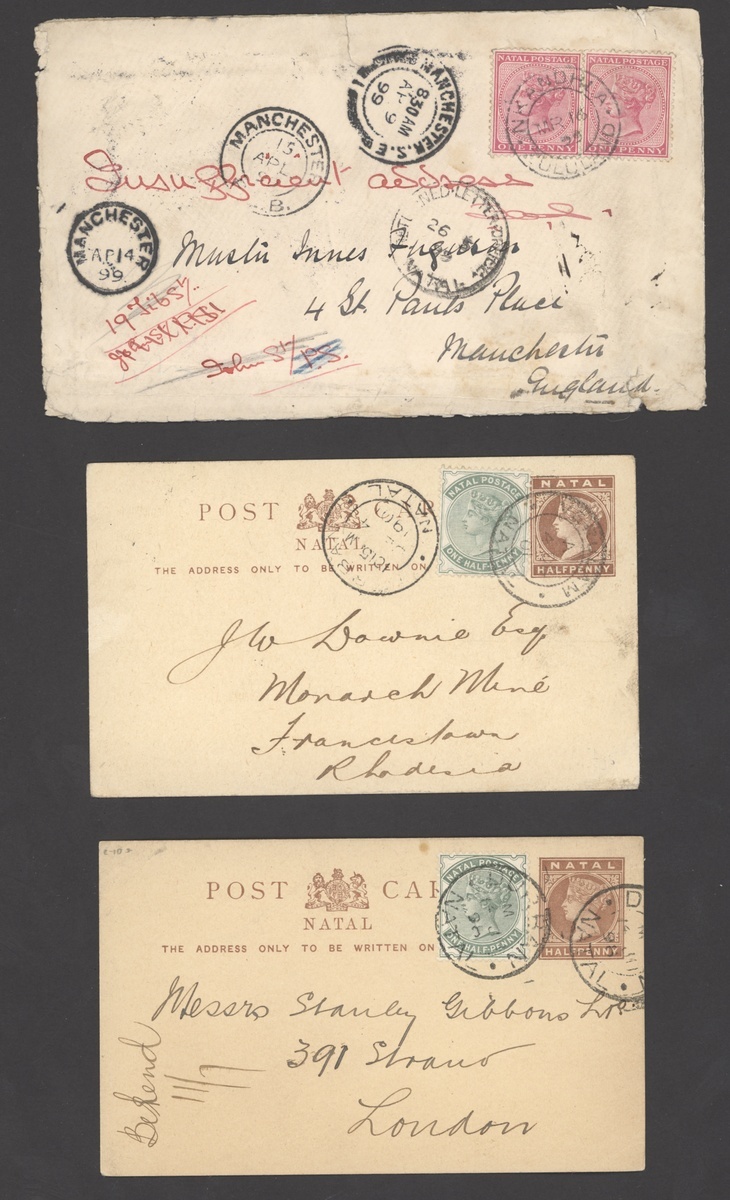 NATAL POSTAGE
NATAL POSTAGE
ONE PENNY
ONE PENNY
MANCHESTER. S.E.
830 AM
AP 9
99
MANCHESTER
15
APL
B.
Insufficient address
MANCHESTER
AP 14
99
26
NATAL
Master Innes
4 St. Pauls Place
Manchester
England.
John St
POST
NATAL
THE ADDRESS ONLY TO BE WRITTEN ON
NATAL
NATAL POSTAGE
ONE HALF-PENNY
NATAL
HALFPENNY
J W Downie Esq
Monarch Mine
Francistown
Rhodesia
POST CAR
NATAL
THE ADDRESS ONLY TO BE WRITTEN ON
NATAL POSTAGE
ONE HALF-PENNY
DURBAN
NATAL
NATAL
HALFPENNY
NATAL
Messrs Stanley Gibbons Ltd.
391 Strand
London
Bekend
11/7